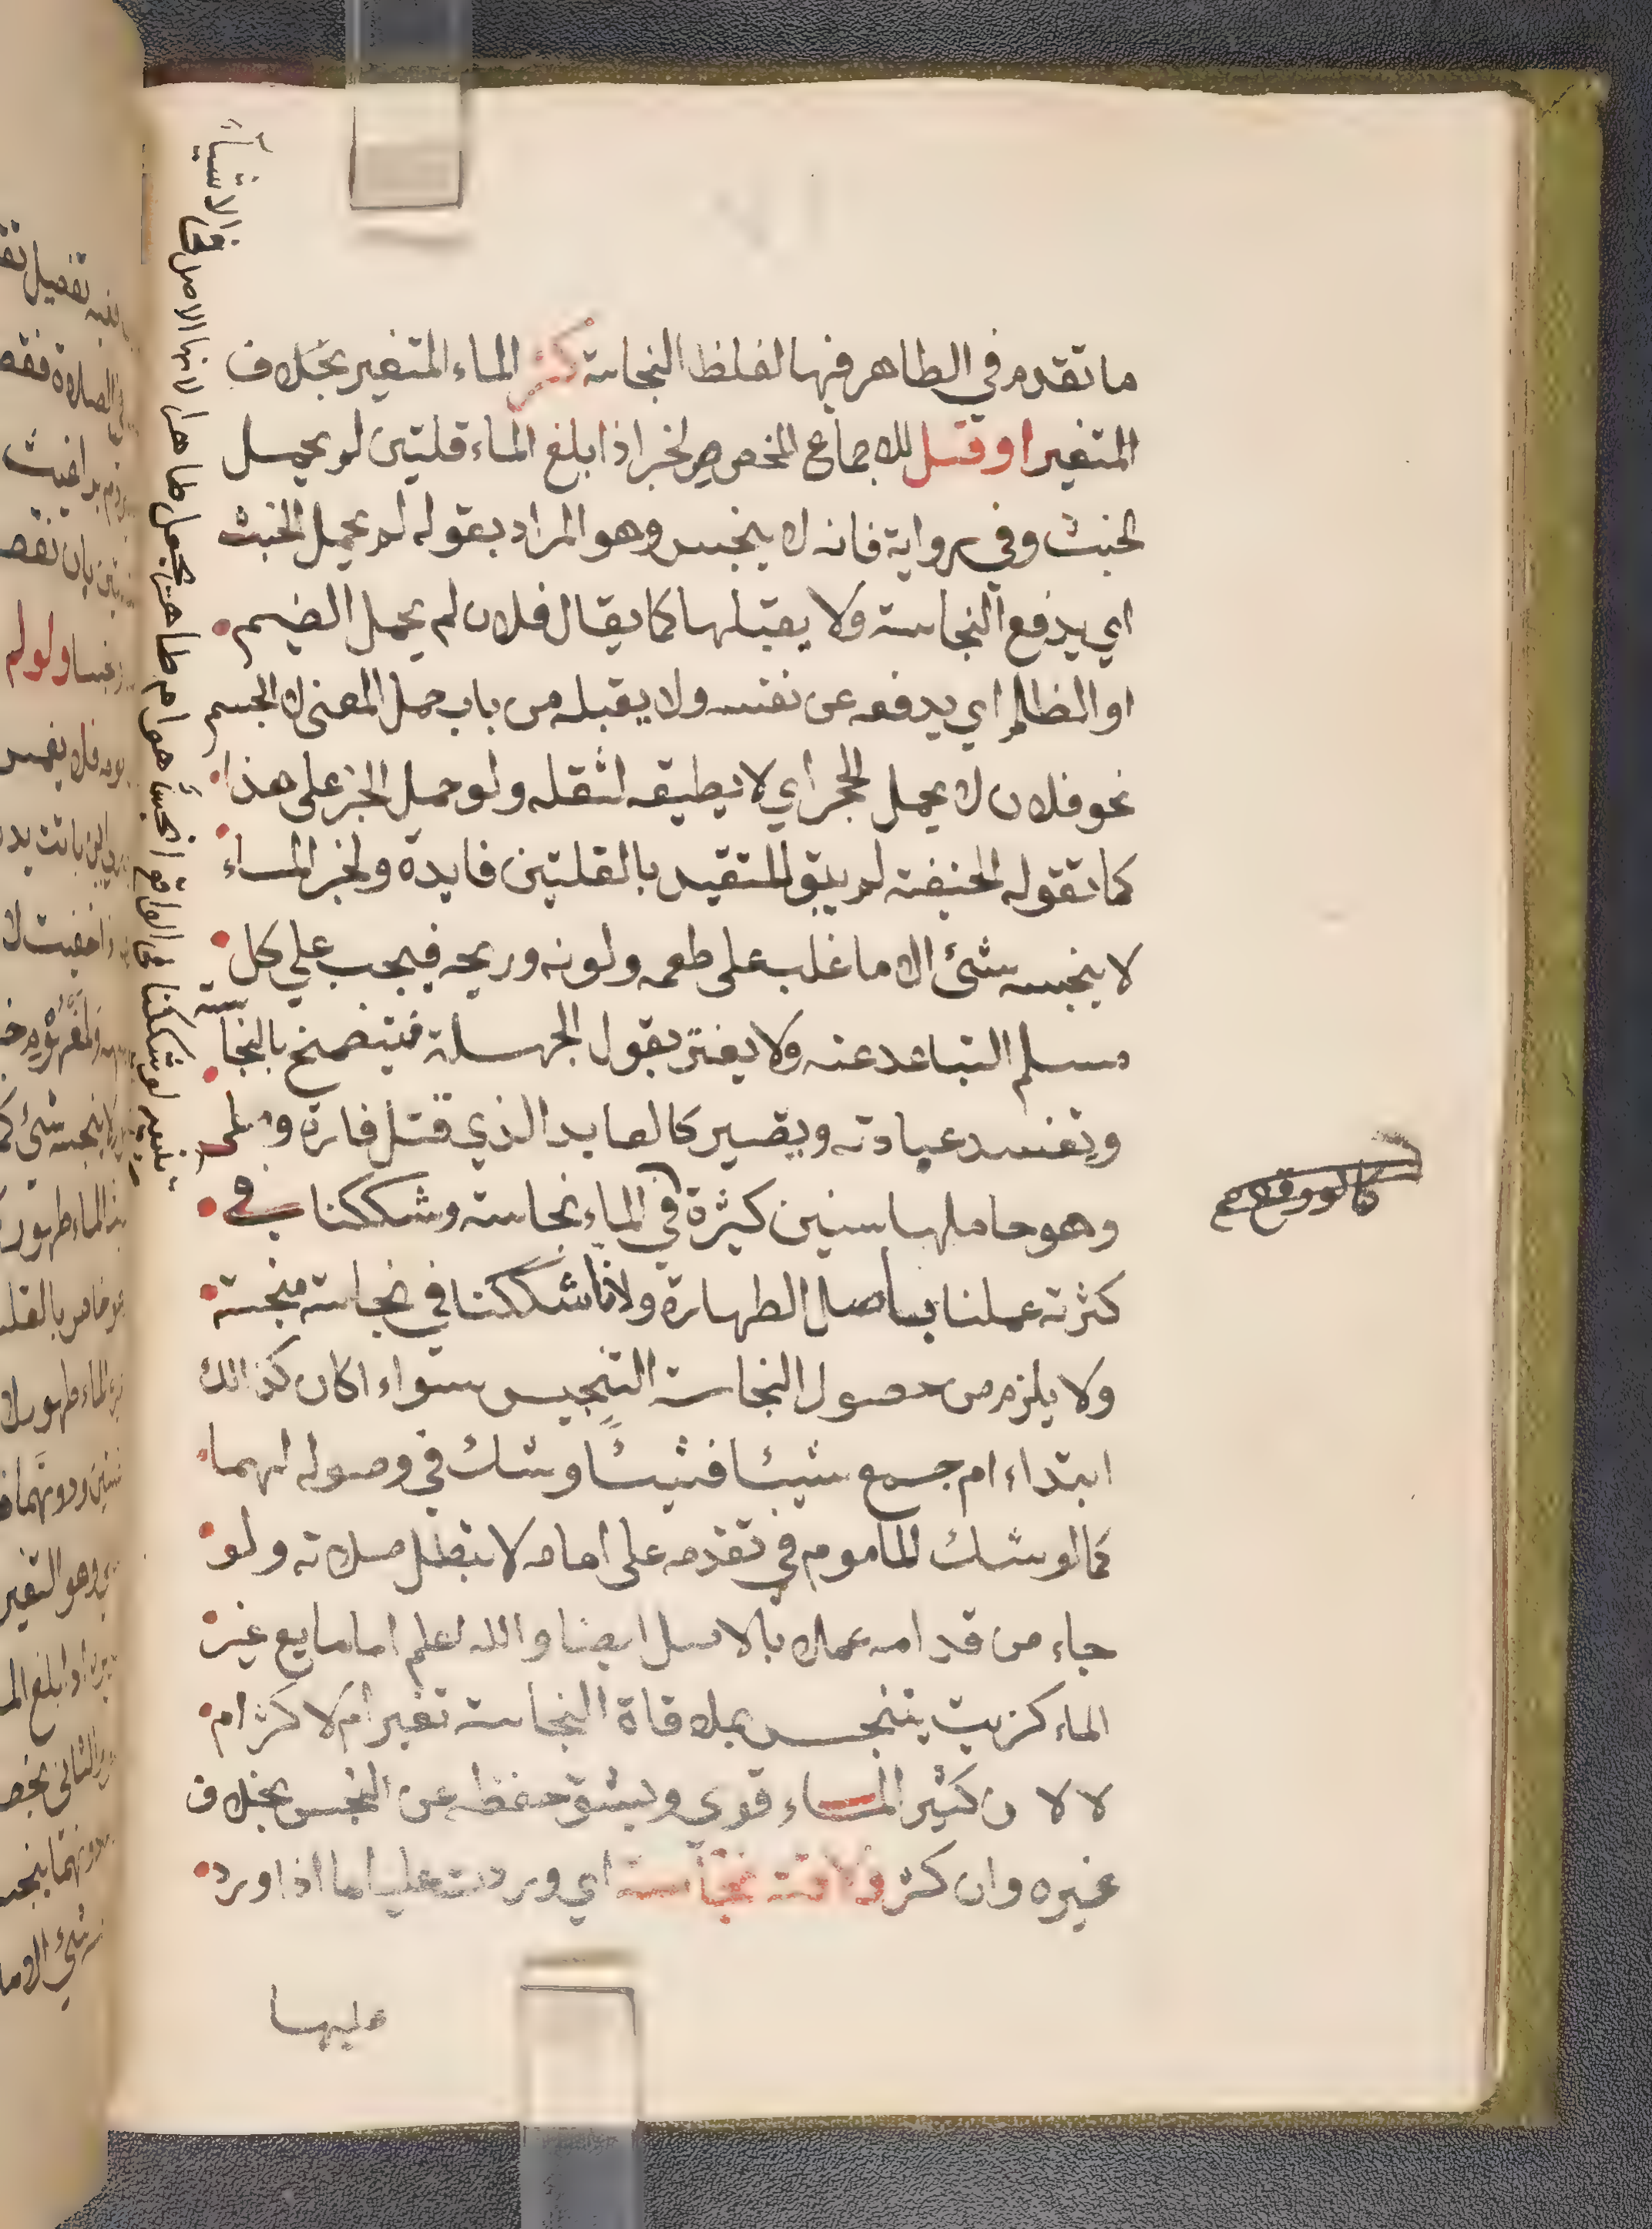 ما تقدم في الطاهر فيها لغلظ النجاسة كثر الماء المتغير بخلاف
المتغير او قل للاجماع المخصص لخبر اذا بلغ الماء قلتين لم يحمل
لخبث وفي رواية فانه لا ينجس وهو المراد بقوله لم يحمل الخبث
اي يدفع النجاسة ولا يقبلها كما يقال فلان لم يحمل الضيم
او الظلم اي يدفعه عن نفسه ولا يقبله من باب حمل المعنى لا الجسم
نحو فلان لا يحمل الحجر اي لا يطيقه لثقله ولو حمل الخبر على هذا
كما تقوله الحنفية لم يبق للتقيد بالقلتين فايدة ولخبر الماء
لا ينجسه شئ الا ما غلب على طعمه ولونه وريحه فيجب علي كل
مسلم التباعد عنه ولا يغتر بقول الجهلة فيتضمخ بالنجاسة
وتفسد عبادته ويصير كالعابد الذي قتل فارة وصلى
وهو حاملها سنين كثيرة في الماء نجاسة وشككنا في
كثرته عملنا باصل الطهارة ولانا شككنا في نجاسة منجسة
ولا يلزم من حصول النجاسة التنجيس سواء اكان كذالك
ابتداء ام جمع شيئا فشيئا وشك في وصوله لهما
كما لو شك الماموم في تقدمه على امامه لا تبطل صلاته ولو
جاء من قدامه عملا بالاصل ايضا والله اعلم اما مايع غير
الماء كزيت يتنجس بملاقاة النجاسة تغير ام لا كثر ام
لا لان كثير الماء قوي ويشق حفظه عن النجس بخلاف
غيره وان كثر ولاقته نجاسة اي وردت عليه اما اذا ورد
عليها
كما لو وقع صح
تنبيه لو شككنا في الواقع انجسا هو ام طاهر يجعل طاهرا لانه الاصل في الاشياء